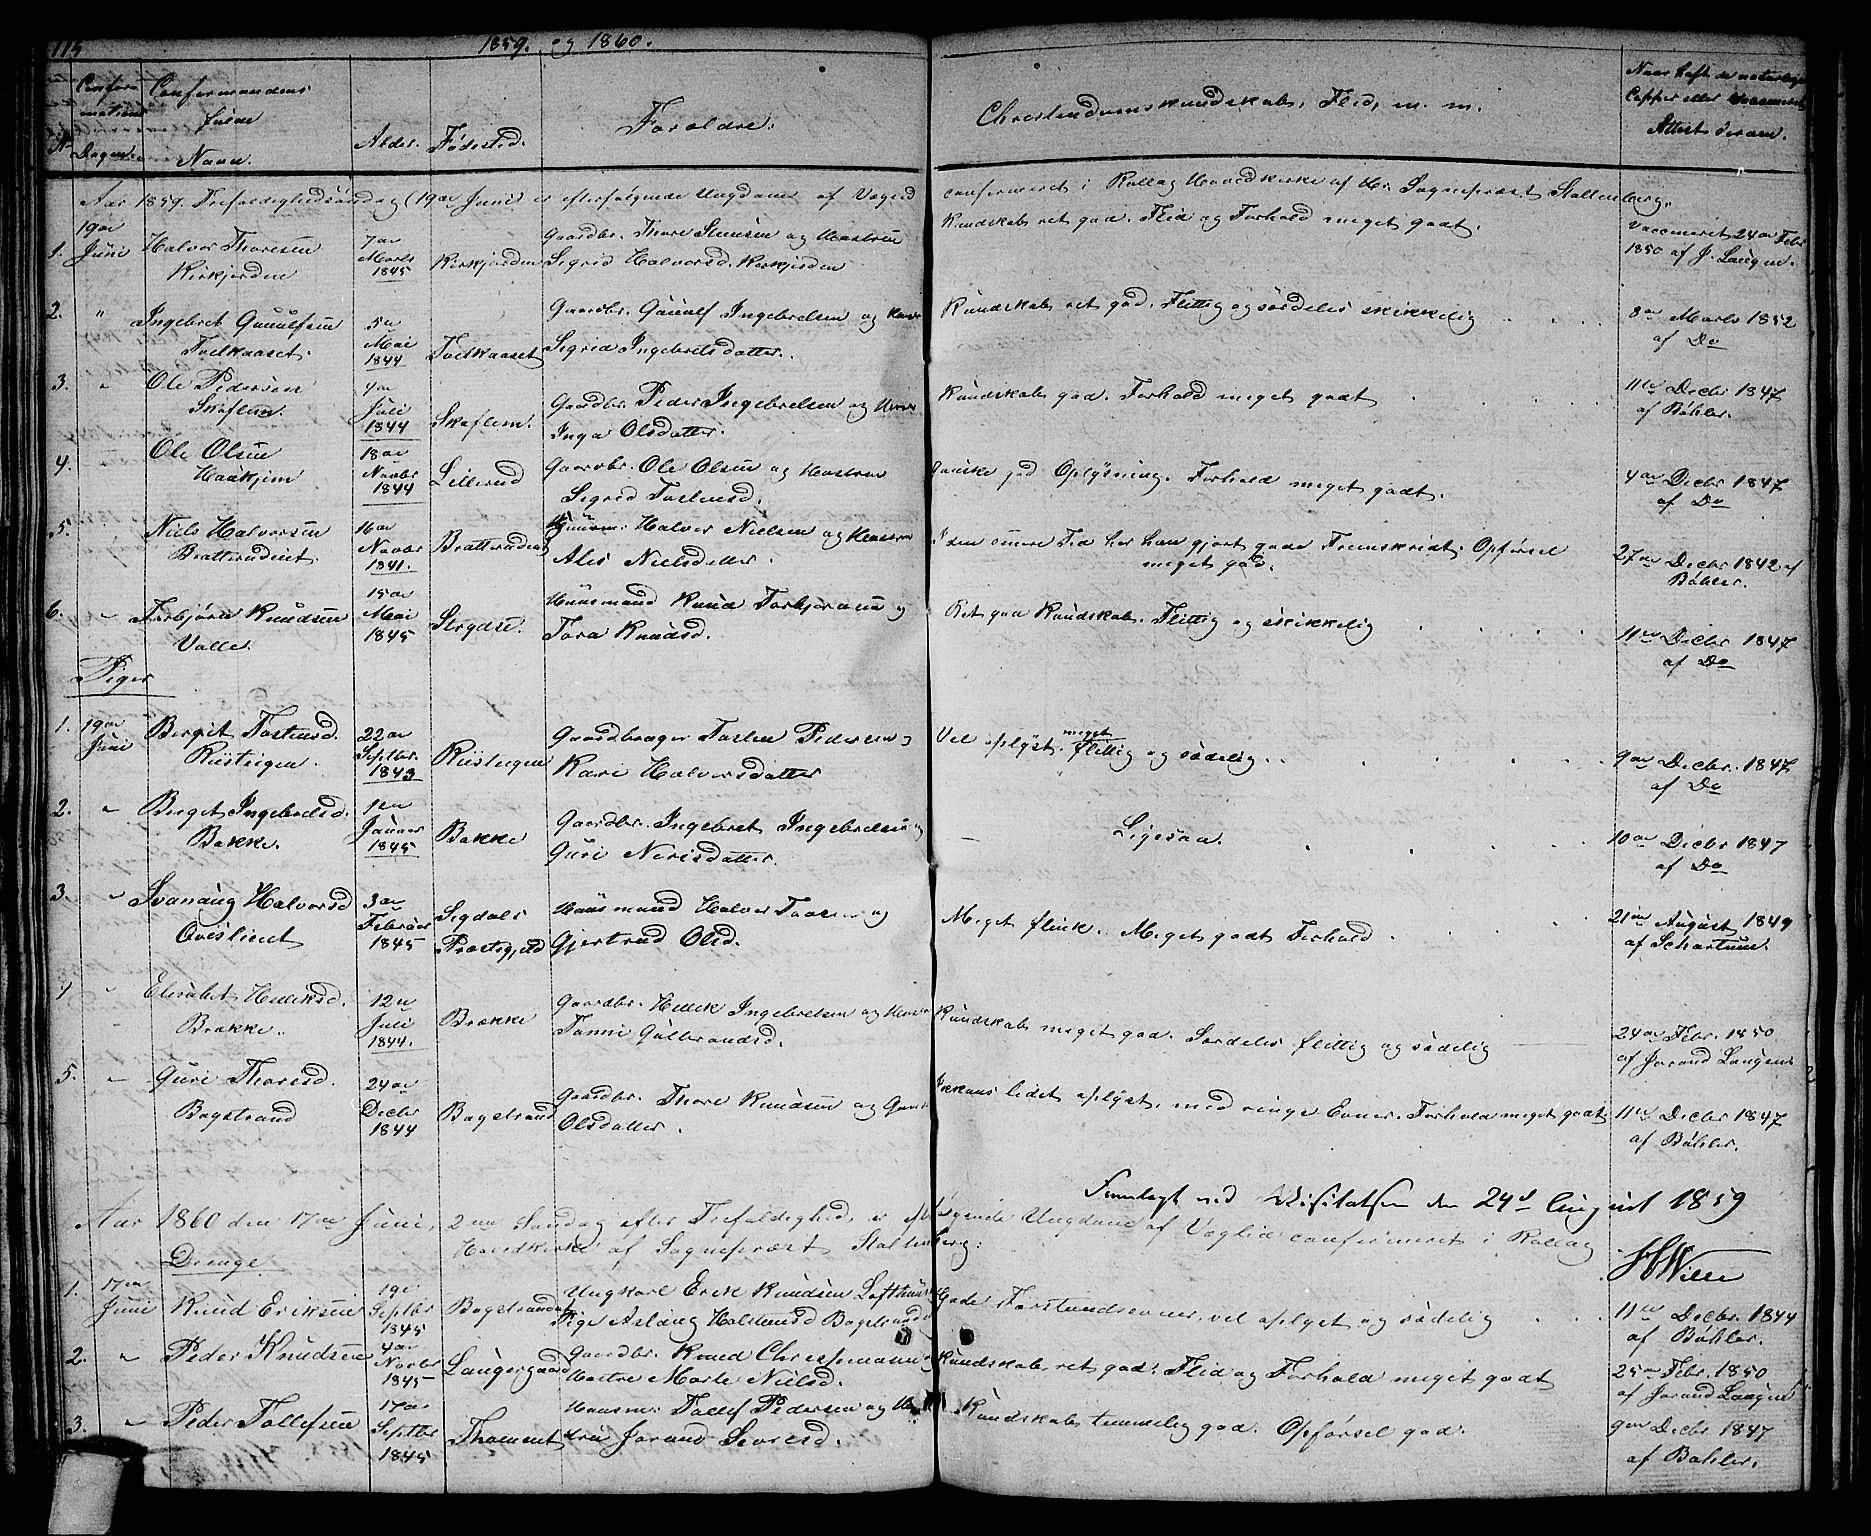 115
1859. og 1860.
Nr.
Confirmations Dagen.
Confirmandens fulde Navn.
Alder.
Fødested.
Forældre.
Christendomskundskab, Flid, m. m.
Naar havt de naturlige Copper eller vaccineret Attest derom.
Aar 1859 Trefoldighedsöndag (19de Juni) er efterfølgende Ungdom af Vegli confirmeret i Rollag Hovedkirke af Hr. Sognepræst Stoltenberg.
1. 19de Juni Halvor Thoresen Kirkjorden 7de Marts 1845 Kirkjorden Gaardbr. Thore Steensen og Hustrue Sigrid Halvorsd. Kirkjorden Kundskab ret god. Flid og Forhold meget godt. Vaccineret 24de Febr 1850 af J. Laugen.
2. " Ingebret Gunulfsen Tvedkaaset. 5te Mai 1844 Tvedkaaset Gaardbr. Gunulf Ingebretsen og Sigrid Ingebretsdatter. Kundskab ret god. Flittig og særdeles skikkelig 8de Marts 1852 af Do
3. " Ole Pedersen Skoflem. 4de Juli 1844 Skoflem. Gaardbr. Peder Ingebretsen og Inga Olsdatter. Kundskab god. Forhold meget godt 11te Decbr 1847 af Böhler.
4. Ole Olsen 18de Novbr 1844 Lillerud Gaardbr. Ole Olsen og Hustrue Sigrid Tostensd. Ganske god Oplysning. Forhold meget godt. 4de Decbr 1847 af Do
5. Niels Halvorsen Bratterudeiet. 16de Novbr 1841. Bratterudeiet Huusm. Halvor Nielsen og Hustrue Alis Nielsdatter. I den senere Tid har han gjort gode Fremskridt. Opförsel meget god. 27de Decbr 1842 af Böhler.
6. " Torbjörn Knudsen Valle. 15de Mai 1845 Huusmand Knud Torbjörnsen og Tora Knudsd. Ret god Kundskab. Flittig og skikkelig 11te Decbr 1847 af Do
Piger
1. 19de Juni Bergit Tostensd. Riisteigen. 22de Septbr. 1843 Riisteigen Gaardbruger Tosten Pedersen og Kari Halvorsdatter Vel oplyst. meget flittig og sædelig. 9de Decbr. 1847 af Do
2. " Birget Ingebretsd. Bakke. 12te Januar 1845 Bakke Gaardbr. Ingebret Ingebretsen og Guri Nerisdatter. Ligesaa. 10de Decbr 1847 af Do
3. " Svanaug Halvorsd 3de Februar 1845 Sigdals Præstegjeld Huusmand Halvor og Gjertrud Olsd. Meget flink. Meget godt Forhold 21de August 1849 af Schartum.
4 " Elisabet Helleksd. Brække. 12te Juli 1844. Brække Gaardbr. Hellek Ingebretsen og Tonni Gulbrandsd. Kundskab meget god. Særdeles flittig og sædelig 24de Febr. 1850 af Jorand Laugen
5. " Guri Thoresd. Bagstrand 24de Decbr 1844 Bagstrand Gaardbr. Thore Knudsen og Olsdatter. lidet oplyst, med ringe Evner. Forhold meget godt 11te Decbr 1847 af Böhler.
Fremlagt ved Visitatsen den 24de August 1859
Wille
Aar 1860 den 17de Juni, 2den Søndag efter Trefoldighed, er følgende Ungdom af Veglid confirmeret i Rollag Hovedkirke af Sognepræst Stoltenberg:
Drenge
1. 17de Juni Knud Eriksen 19de Septbr 1845 Bagstrandeie Ungkarl Erik Knudsen Lofthuus Pige Aslaug Halstensd Bagstrand Gode Forstandsevner, vel oplyst og sædelig 11te Decbr. 1844 af Böhler.
2. " Peder Knudsen 4de Novbr 1845 Laugergaard Gaardbr. Knud Christiansen og Hustru Marte Nielsd. Kundskab ret god. Flid og Forhold meget godt 25de Febr. 1850 af Jorand Laugen
3. " Peder Tollefsen 17de Septbr 1845 Thoment Huusm. Tollef Pedersen og Hustru Jorand Seversd. Kundskab temmelig god. Opførsel god. 9de Decbr. 1847 af Böhler.